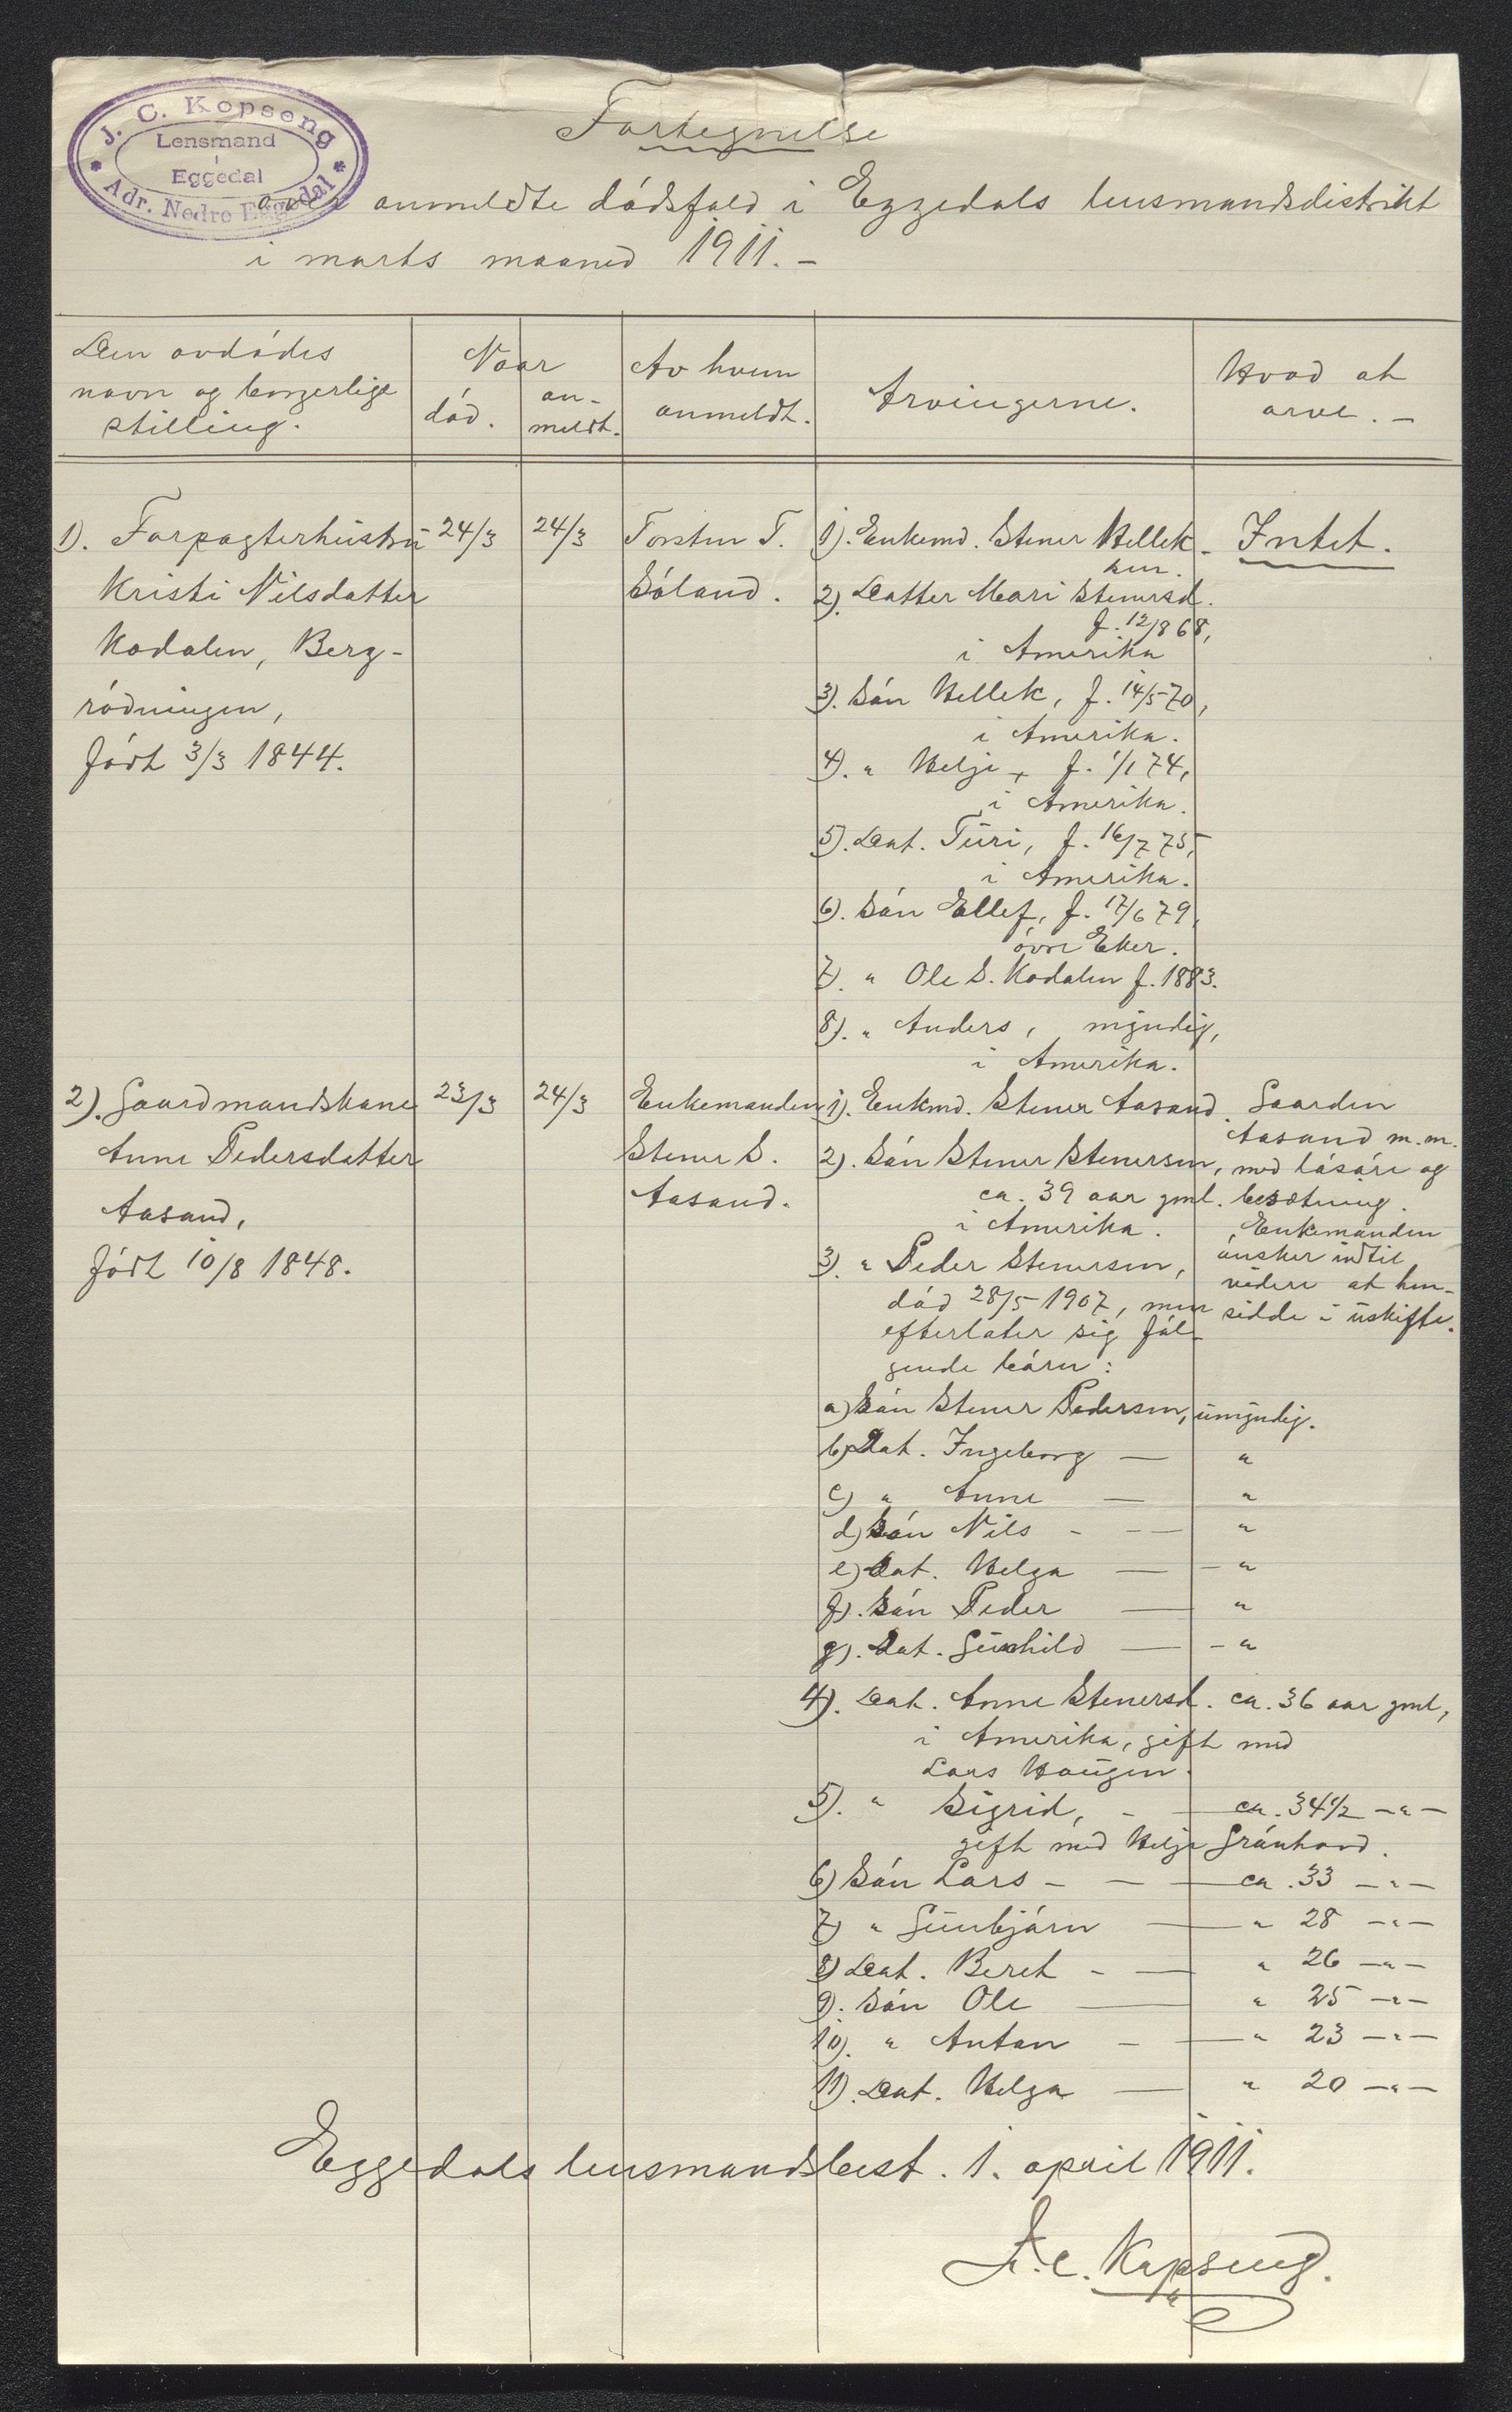 J. C. Kopseng
Lensmand
i
Eggedal
Adr. Nedre Eggedal
Fortegnelse
over anmeldte dødsfald i Eggedals lensmandsdistrikt
i marts maaned 1911. –
Den avdødes
navn og borgerlige
stilling.
Naar
død.
an-
meldt.
Av hvem
anmeldt.
Arvingerne.
Hvad at
arve. –
1). Forpagterhustru
Kristi Nilsdatter
Kodalen, Berg-
rødningen,
født 3/3 1844.
24/3
24/3
Torsten T.
Søland.
1). Enkemd. Stener Hellek-
sen.
2). Datter Mari Stenersd.
f. 12/8 68,
i Amerika
3). Søn Hellek, f. 14/5 70,
i Amerika.
4). " Helge, f. 1/1 74,
i Amerika.
5). Dat. Turi, f. 16/7 75,
i Amerika.
6). Søn Ellef, f. 17/6 79,
øvre Eker.
7). " Ole S. Kodalen f. 1883.
8). " Anders, myndig,
i Amerika.
Intet.
2). Gaardmandskone
Anne Pedersdatter
Aasand,
født 10/8 1848.
23/3
24/3
Enkemanden
Stener S.
Aasand.
1). Enkmd. Stener Aasand.
2). Søn Stener Stenersen,
ca. 39 aar gml.
i Amerika.
3). " Peder Stenersen,
død 28/5 1907, men
efterlater sig føl-
gende børn:
Gaarden
Aasand m.m.
med løsøre og
besætning.
Enkemanden
ønsker indtil
videre at hen-
sidde i uskifte.
a) Søn Stener Pedersen, umyndig.
b) Dat. Ingeborg — "
c) " Anne — "
d) Søn Nils - — "
e) Dat. Helga — - "
f). Søn Peder — "
g). Dat. Gunhild — - "
4). Dat. Anne Stenersd. ca. 36 aar gml,
i Amerika, gift med
Lars Haugen.
5). " Sigrid, - — ca. 34½ —"—
gift med Helge Grønhovd.
6) Søn Lars - — — ca. 33 —"—
7) " Gunbjørn — " 28 —"—
8) Dat. Beret - — " 26 —"—
9). Søn Ole — " 25 —"—
10). " Anton - — " 23 —"—
11). Dat. Helga — " 20 —"—
Eggedals lensmandsbest. 1. april 1911.
J. C. Kopseng.